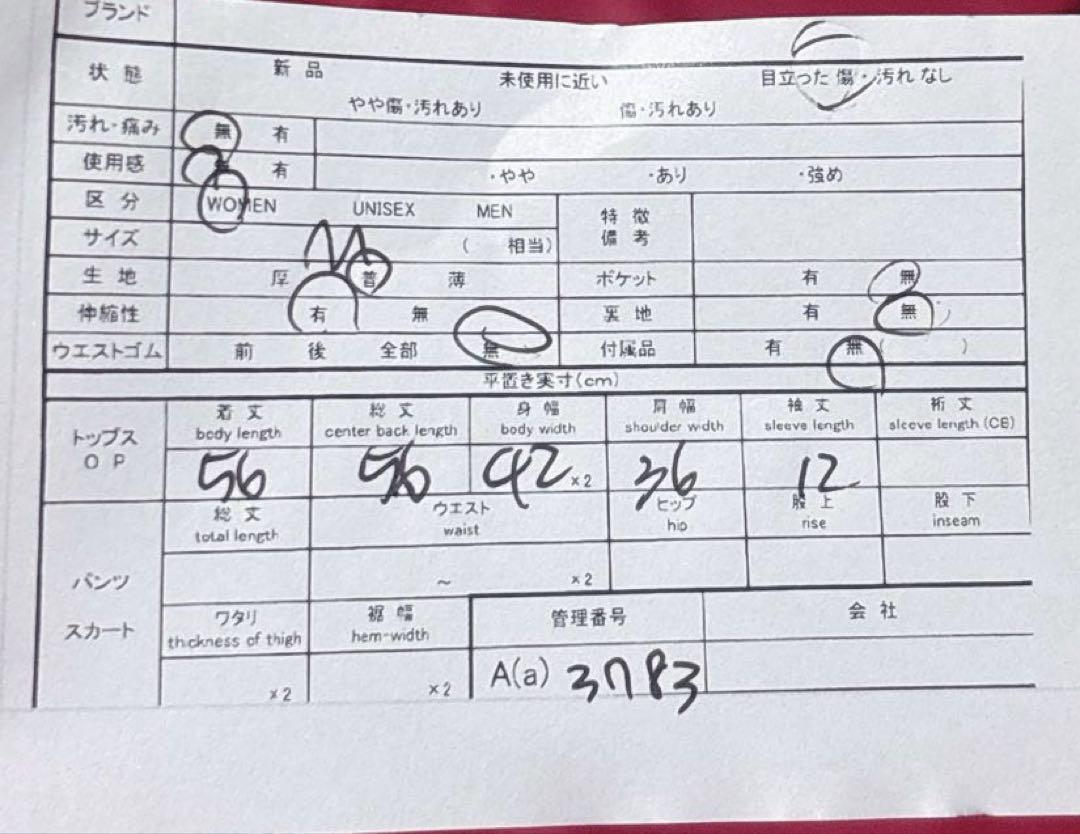 ブランド
状態 新品 未使用に近い 目立った傷・汚れなし
やや傷・汚れあり 傷・汚れあり
汚れ・痛み 無 有
使用感 有 ・やや ・あり ・強め
区分 WOMEN UNISEX MEN 特徴
備考
サイズ M ( 相当)
生地 厚 普 薄 ポケット 有 無
伸縮性 有 無 裏地 有 無
ウエストゴム 前 後 全部 無 付属品 有 無 ( )
平置き実寸(cm)
トップス
OP
着丈 総丈 身幅 肩幅 袖丈 裄丈
body length center back length body width shoulder width sleeve length sleeve length (CB)
56 56 42 ×2 36 12
総丈 ウエスト ヒップ 股上 股下
total length waist hip rise inseam
パンツ ~ ×2
スカート
ワタリ 裾幅 管理番号 会社
thickness of thigh hem-width
×2 ×2 A(a) 3783